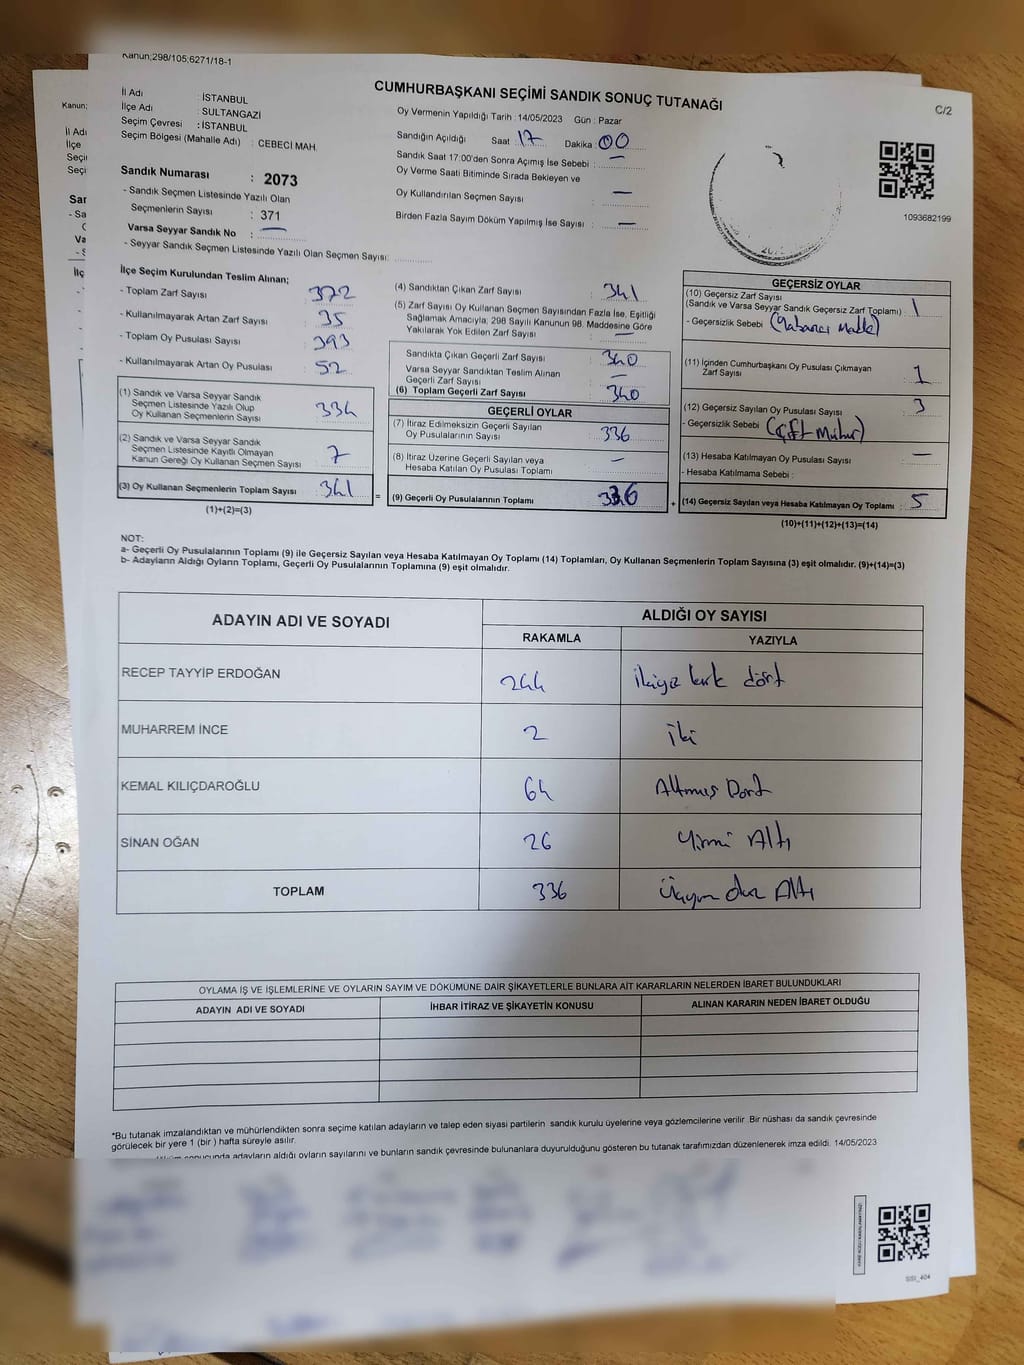 Kanun;298/105;6271/18-1
CUMHURBAŞKANI SEÇİMİ SANDIK SONUÇ TUTANAĞI
C/2
İl Adı : İSTANBUL
İlçe Adı : SULTANGAZİ
Seçim Çevresi : İSTANBUL
Seçim Bölgesi (Mahalle Adı) : CEBECİ MAH.
Sandık Numarası : 2073
- Sandık Seçmen Listesinde Yazılı Olan
Seçmenlerin Sayısı : 371
Varsa Seyyar Sandık No : —
- Seyyar Sandık Seçmen Listesinde Yazılı Olan Seçmen Sayısı:
Oy Vermenin Yapıldığı Tarih : 14/05/2023 Gün : Pazar
Sandığın Açıldığı Saat : 17 Dakika : 00
Sandık Saat 17:00'den Sonra Açımış İse Sebebi : —
Oy Verme Saati Bitiminde Sırada Bekleyen ve
Oy Kullandırılan Seçmen Sayısı : —
Birden Fazla Sayım Döküm Yapılmış İse Sayısı : —
1093682199
İlçe Seçim Kurulundan Teslim Alınan;
- Toplam Zarf Sayısı : 372
- Kullanılmayarak Artan Zarf Sayısı : 35
- Toplam Oy Pusulası Sayısı : 393
- Kullanılmayarak Artan Oy Pusulası : 52
(1) Sandık ve Varsa Seyyar Sandık
Seçmen Listesinde Yazılı Olup
Oy Kullanan Seçmenlerin Sayısı : 334
(2) Sandık ve Varsa Seyyar Sandık
Seçmen Listesinde Kayıtlı Olmayan
Kanun Gereği Oy Kullanan Seçmen Sayısı : 7
(3) Oy Kullanan Seçmenlerin Toplam Sayısı : 341
(1)+(2)=(3)
(4) Sandıktan Çıkan Zarf Sayısı : 341
(5) Zarf Sayısı Oy Kullanan Seçmen Sayısından Fazla İse, Eşitliği
Sağlamak Amacıyla; 298 Sayılı Kanunun 98. Maddesine Göre
Yakılarak Yok Edilen Zarf Sayısı : —
Sandıkta Çıkan Geçerli Zarf Sayısı : 340
Varsa Seyyar Sandıktan Teslim Alınan
Geçerli Zarf Sayısı : —
(6) Toplam Geçerli Zarf Sayısı : 340
GEÇERLİ OYLAR
(7) İtiraz Edilmeksizin Geçerli Sayılan
Oy Pusulalarının Sayısı : 336
(8) İtiraz Üzerine Geçerli Sayılan veya
Hesaba Katılan Oy Pusulası Toplamı : —
(9) Geçerli Oy Pusulalarının Toplamı : 336
GEÇERSİZ OYLAR
(10) Geçersiz Zarf Sayısı
(Sandık ve Varsa Seyyar Sandık Geçersiz Zarf Toplamı) : 1
- Geçersizlik Sebebi : (Yabancı Madde)
(11) İçinden Cumhurbaşkanı Oy Pusulası Çıkmayan
Zarf Sayısı : 1
(12) Geçersiz Sayılan Oy Pusulası Sayısı : 3
- Geçersizlik Sebebi : (Çift Mühür)
(13) Hesaba Katılmayan Oy Pusulası Sayısı : —
- Hesaba Katılmama Sebebi :
(14) Geçersiz Sayılan veya Hesaba Katılmayan Oy Toplamı : 5
(10)+(11)+(12)+(13)=(14)
NOT:
a- Geçerli Oy Pusulalarının Toplamı (9) ile Geçersiz Sayılan veya Hesaba Katılmayan Oy Toplamı (14) Toplamları, Oy Kullanan Seçmenlerin Toplam Sayısına (3) eşit olmalıdır. (9)+(14)=(3)
b- Adayların Aldığı Oyların Toplamı, Geçerli Oy Pusulalarının Toplamına (9) eşit olmalıdır.
ADAYIN ADI VE SOYADI
ALDIĞI OY SAYISI
RAKAMLA YAZIYLA
RECEP TAYYİP ERDOĞAN 244 ikiyüz kırk dört
MUHARREM İNCE 2 iki
KEMAL KILIÇDAROĞLU 64 Altmış Dört
SİNAN OĞAN 26 Yirmi Altı
TOPLAM 336 Üçyüz otuz Altı
OYLAMA İŞ VE İŞLEMLERİNE VE OYLARIN SAYIM VE DÖKÜMÜNE DAİR ŞİKAYETLERLE BUNLARA AİT KARARLARIN NELERDEN İBARET BULUNDUKLARI
ADAYIN ADI VE SOYADI İHBAR İTİRAZ VE ŞİKAYETİN KONUSU ALINAN KARARIN NEDEN İBARET OLDUĞU
*Bu tutanak imzalandıktan ve mühürlendikten sonra seçime katılan adayların ve talep eden siyasi partilerin sandık kurulu üyelerine veya gözlemcilerine verilir. Bir nüshası da sandık çevresinde
görülecek bir yere 1 (bir ) hafta süreyle asılır.
sonucunda adayların aldığı oyların sayılarını ve bunların sandık çevresinde bulunanlara duyurulduğunu gösteren bu tutanak tarafımızdan düzenlenerek imza edildi. 14/05/2023
SSI_404